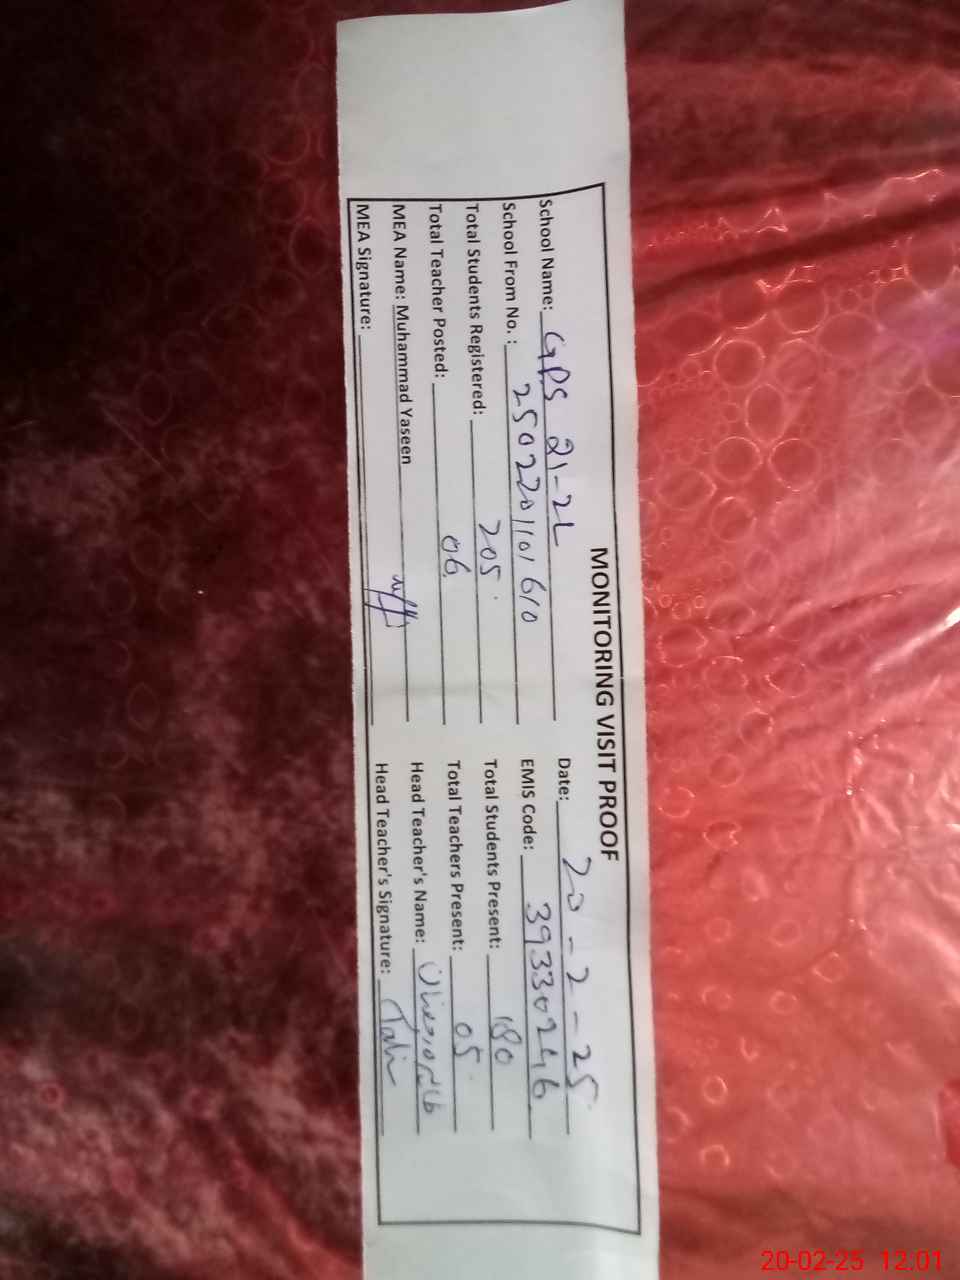 MONITORING VISIT PROOF
School Name: GPS 21-2L Date: 20-2-25
School From No. : 2502201101610 EMIS Code: 39330246
Total Students Registered: 205 Total Students Present: 180
Total Teacher Posted: 06 Total Teachers Present: 05
MEA Name: Muhammad Yaseen Head Teacher's Name:
MEA Signature: Head Teacher's Signature:
20-02-25 12.01